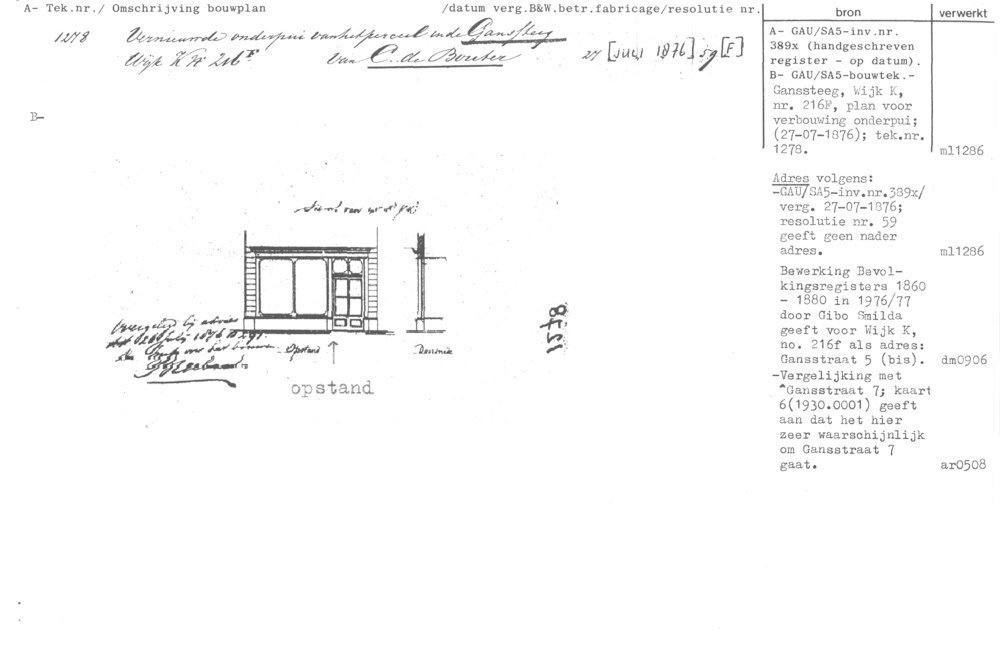 A- Tek.nr./ Omschrijving bouwplan /datum verg.B&W.betr.fabricage/resolutie nr.
bron
verwerkt
1278 Vernieuwde onderpui van het perceel in de Ganssteeg
Wijk K No 216F van C. de Bouter 27 [Juli 1876] 59 [F]
B-
A- GAU/SA5-inv.nr.
389x (handgeschreven
register - op datum).
B- GAU/SA5-bouwtek.-
Ganssteeg, Wijk K,
nr. 216F, plan voor
verbouwing onderpui;
(27-07-1876); tek.nr.
1278.
ml1286
Adres volgens:
-GAU/SA5-inv.nr.389x/
verg. 27-07-1876;
resolutie nr. 59
geeft geen nader
adres.
ml1286
Bewerking Bevol-
kingsregisters 1860
- 1880 in 1976/77
door Gibo Smilda
geeft voor Wijk K,
no. 216f als adres:
Gansstraat 5 (bis).
dm0906
-Vergelijking met
^Gansstraat 7; kaart
6(1930.0001) geeft
aan dat het hier
zeer waarschijnlijk
om Gansstraat 7
gaat.
ar0508
Overgelegd bij advies
Opstand
Doorsnede
opstand